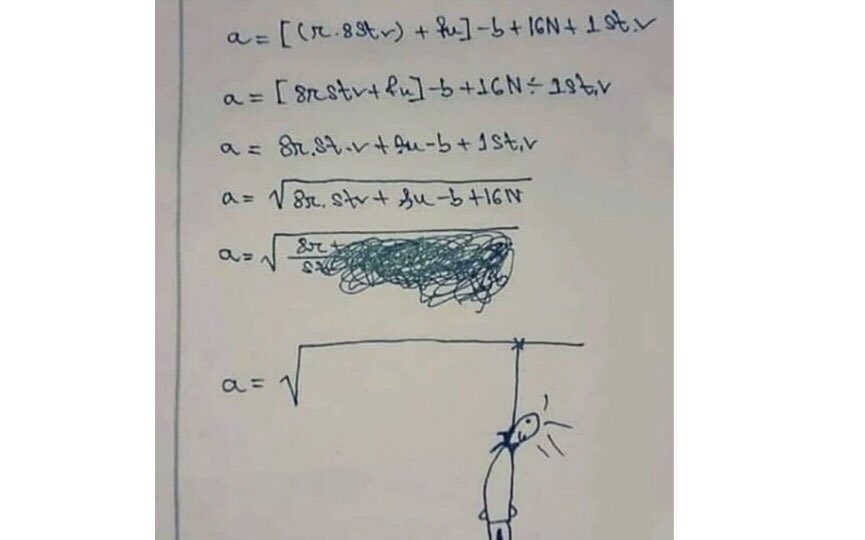 a = [(r.8St v) + fu] - b + 16N + 1 St.v
a = [8r stv + fu] - b + 16N ÷ 1st.v
a = 8r.St.v + fu - b + 1st.v
a = √8r. Stv + fu - b + 16N
a = √8r +
a = √